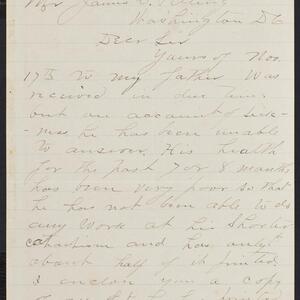 Mr James
Washington DC
Dear Sir
Yours of Nov.
17th to my father was
received in due time
but on account of sick-
ness he has been unable
to answer. His health
for the past 7 or 8 months
has been very poor so that
he has not been able to do
any work at his Shorter
Catechism and has only
about half of it printed.
I enclose you a copy
of